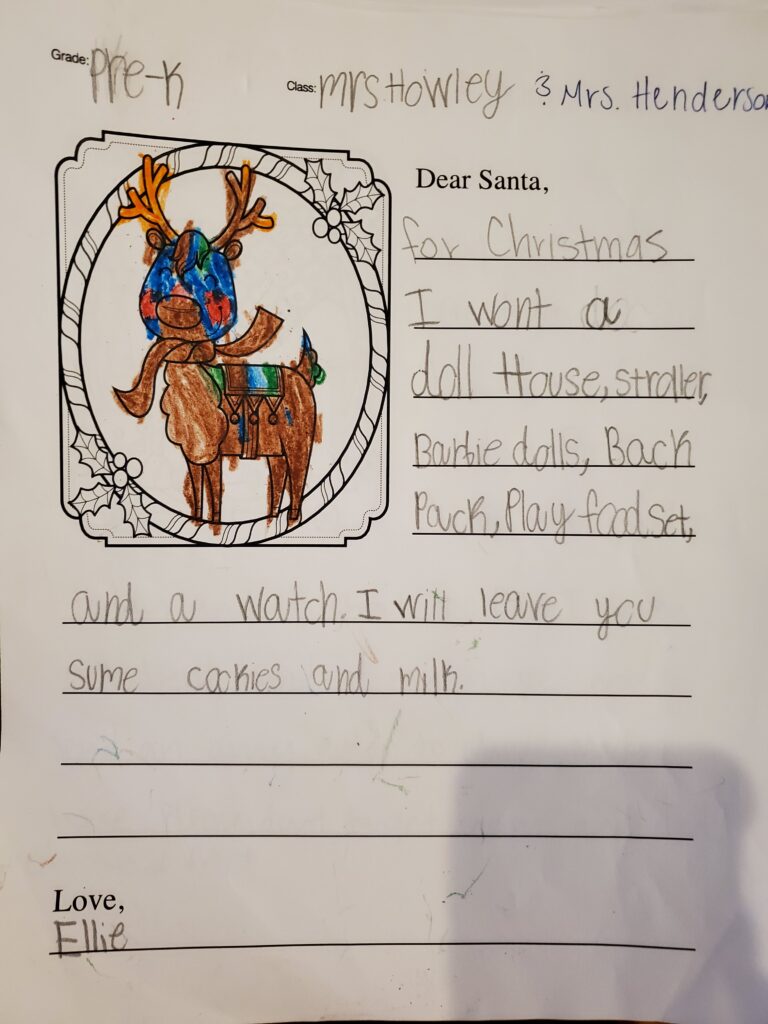 Grade: Pre-K
Class: mrs Howley & Mrs. Henderson
Dear Santa,
for Christmas
I wont a
doll House, stroller,
Barbie dolls, Back
Pack, Play food set,
and a watch. I will leave you
sume cookies and milk.
Love,
Ellie